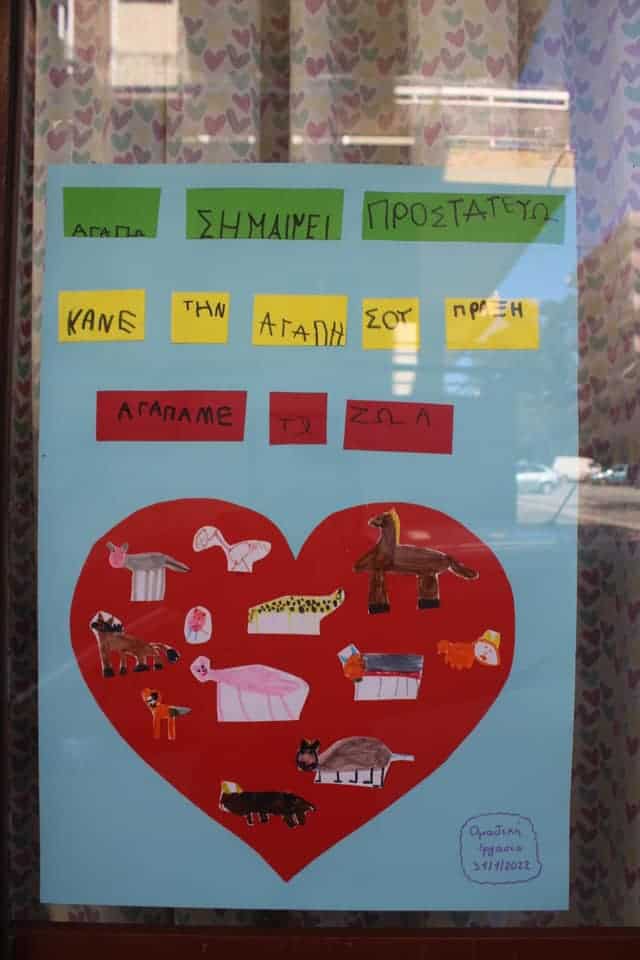 ΑΓΑΠΩ ΣΗΜΑΙΝΕΙ ΠΡΟΣΤΑΤΕΥΩ
ΚΑΝΕ ΤΗΝ ΑΓΑΠΗ ΣΟΥ ΠΡΑΞΗ
ΑΓΑΠΑΜΕ ΤΑ ΖΩΑ
Ομαδική
εργασία
31/1/2022